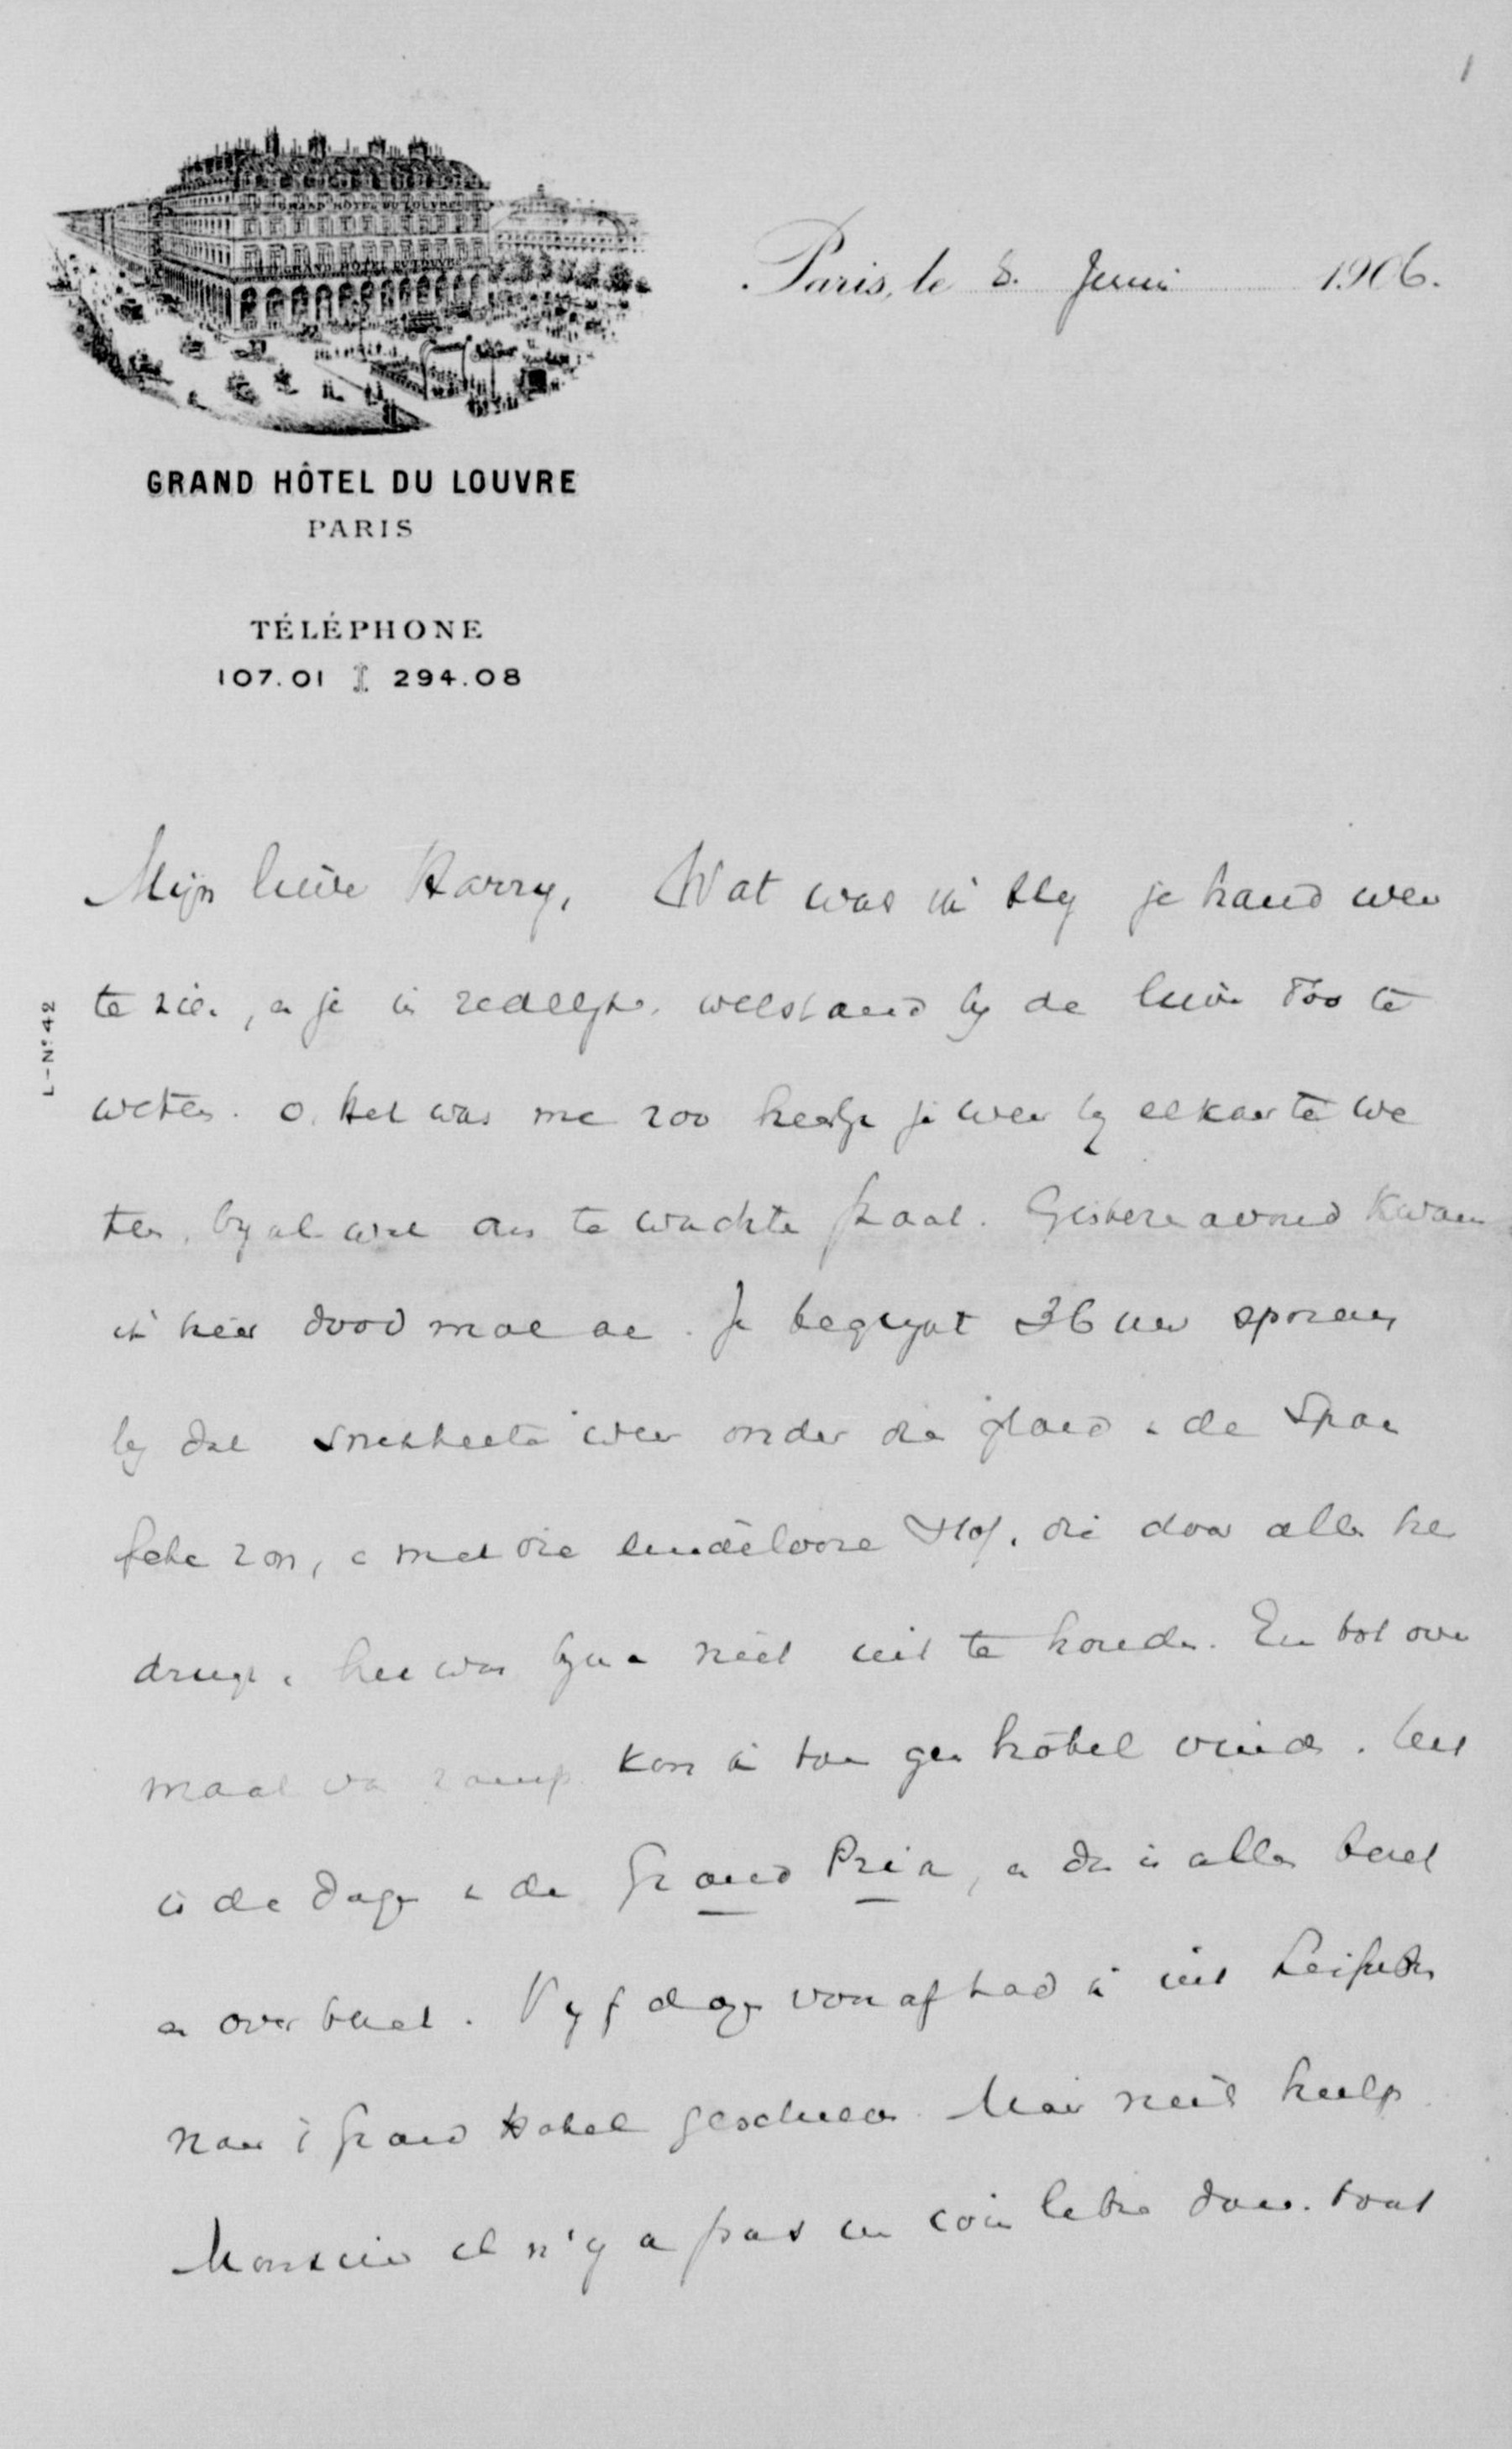 1
GRAND HÔTEL DU LOUVRE
PARIS
TÉLÉPHONE
107.01 294.08
Paris, le 8. Juni 1906.
L-Nº 42
Mijn lieve Harry, Wat was ik bly je hand weer
te zien, en je in redelyke welstand by de lieve Too te
weten. o, het was me zoo heerlyk je weer by elkaar te we
ten, by al wat ons te wachten staat. Gisteren avond kwam
ik hier dood moe aan. Je begrypt 36 uur sporen
by dat smeltheete weer onder die gloed van de Spaan
sche zon, en met die eindeloose stof, die door alles heen
dringt, het was byna niet uit te houden. En tot over
maat van ramp kon ik toen geen hôtel vinden. Het
is de dagen van de Grand Prix, en dan is alles bezet
en overbezet. Vyf dagen vooraf had ik uit
naar 't Grand Hotel geschreven. Maar niets hielp
Monsieur il n'y a pas un coin libre dans tout